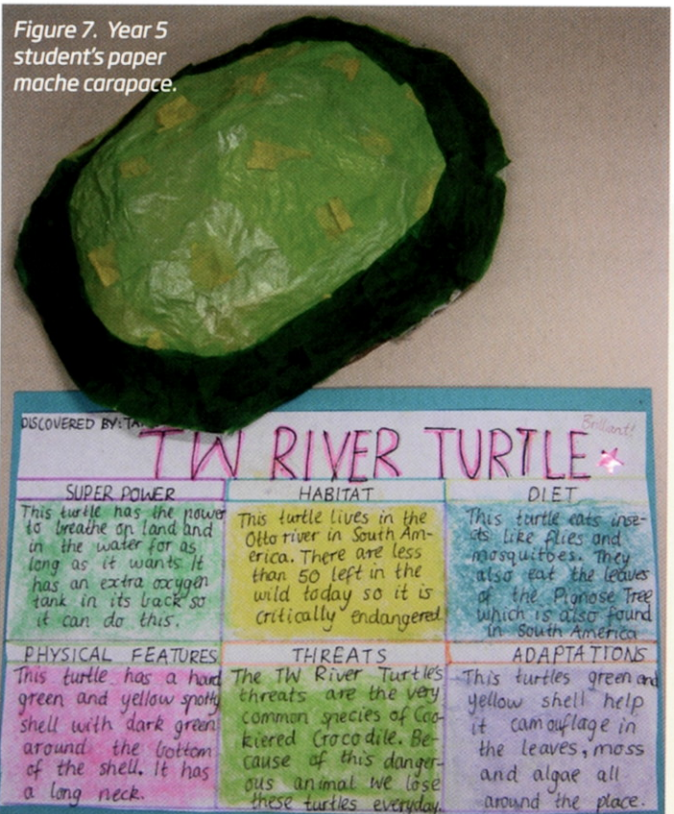 Figure 7. Year 5
student's paper
mache carapace.
DISCOVERED BY:
Brilliant!
TW RIVER TURTLE
SUPER POWER
This turtle has the power
to breathe on land and
in the water for as
long as it wants It
has an extra oxygen
tank in its back so
it can do this.
HABITAT
This turtle lives in the
Otto river in South Am-
erica. There are less
than 50 left in the
wild today so it is
critically endangered
DIET
This turtle eats inse-
cts like flies and
mosquitoes. They
also eat the leaves
of the Pignose Tree
which is also found
in South America
PHYSICAL FEATURES
This turtle has a hard
green and yellow spotty
shell with dark green
around the bottom
of the shell. It has
a long neck.
THREATS
The TW River Turtle's
threats are the very
common species of Coo-
kiered Crocodile. Be-
cause of this danger-
ous animal we lose
these turtles everyday.
ADAPTATIONS
This turtles green and
yellow shell help
it camouflage in
the leaves, moss
and algae all
around the place.